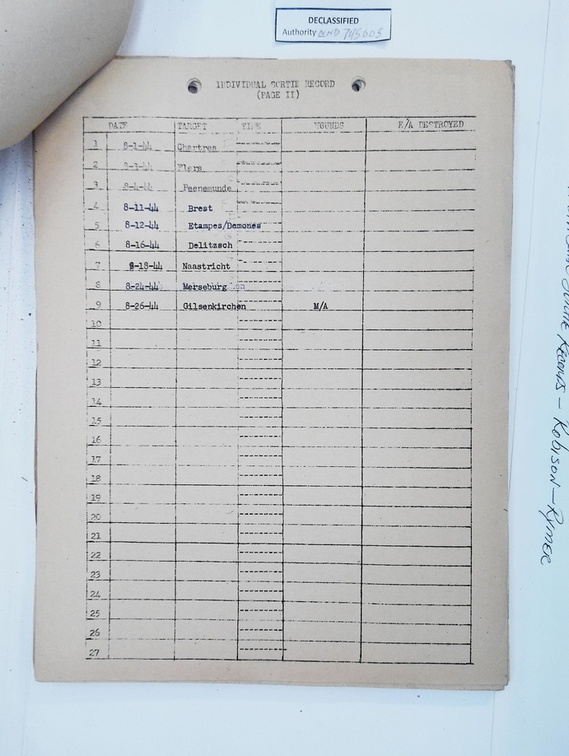 DECLASSIFIED
Authority NND 745005
INDIVIDUAL SORTIE RECORD
(PAGE II)
DATE TARGET TIME WOUNDS E/A DESTROYED
1 8-1-44 Chartres
2 Flers
3 8-4-44 Peenemunde
4 8-11-44 Brest
5 8-12-44 Etampes/Demones
6 8-16-44 Delitzsch
7 8-18-44 Naastricht
8 8-24-44 Merseburg
9 8-26-44 Gilsenkirchen M/A
10
11
12
13
14
15
16
17
18
19
20
21
22
23
24
25
26
27
Records - Robison - Rymer